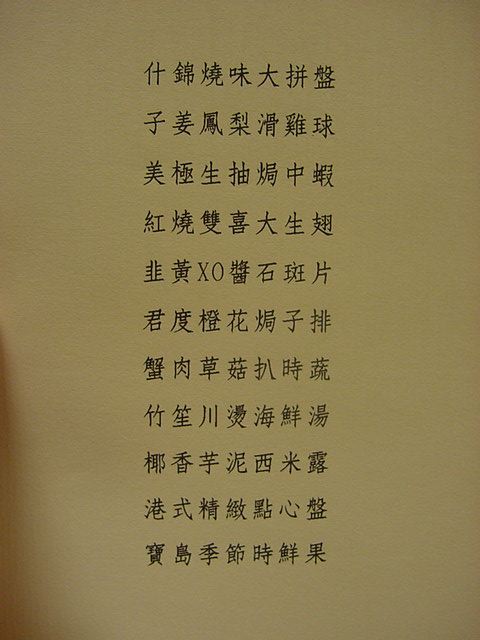 什錦燒味大拼盤
子姜鳳梨滑雞球
美極生抽焗中蝦
紅燒雙喜大生翅
韭黃XO醬石斑片
君度橙花焗子排
蟹肉草菇扒時蔬
竹笙川燙海鮮湯
椰香芋泥西米露
港式精緻點心盤
寶島季節時鮮果